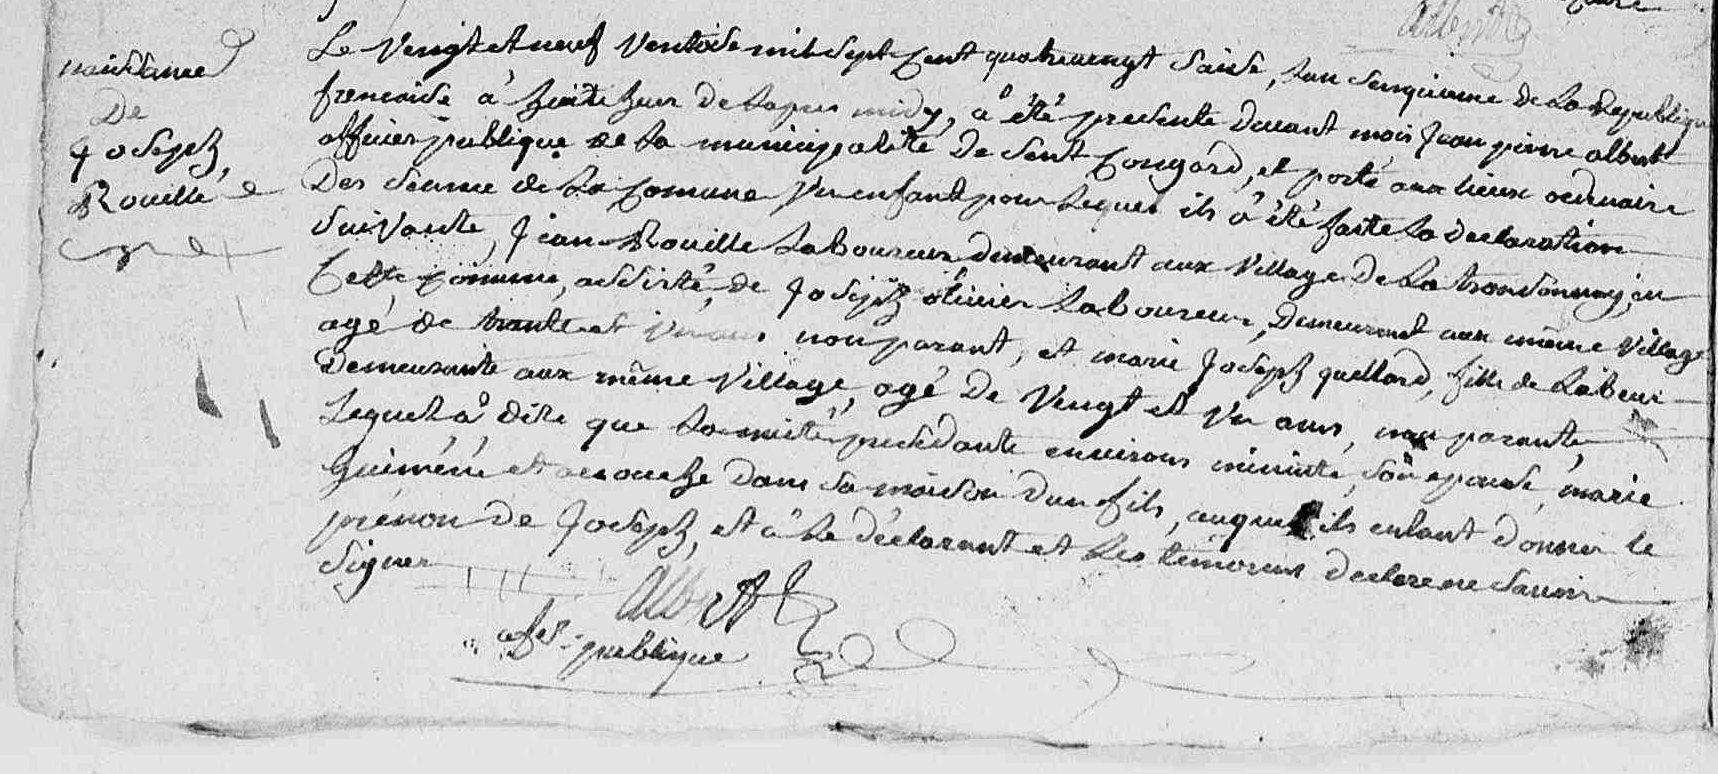 naissance
De
Joseph
Rouillé
Le Vengt et neuf Ventose mil sept Cent quatrevengt saise, Lan senquieme de La Republique
frencaise à huite heur de Lapres midy, à été presente devant mois Jean pierre albert
officier publique de la municipalité De Sent Congard, et porté aux lieux ordenaire
Des seance de La Comune Vn enfant pour Lequel ils à été faite La Declaration
Suivante, Jean Rouille Laboureur demeurant aux Village De La
Cette Comune, assisté, de Joseph olivier Laboureur, Demeurant aux même Village
agé de trante et Vn ans non parant, et marie Joseph quellard, fille de Labeur
Demeurante aux même Village, agé De Vengt et Vn ans, non parante,
Lequel à dite que La nuite precedante environs minuite, son epouse, marie
Guiméné et accouche dans sa maison dun fils, auquel ils enlant donner le
prénon de Joseph, et à Le déclarant et Les temoiens declare ne savoir
signer
Albert
ofer publique